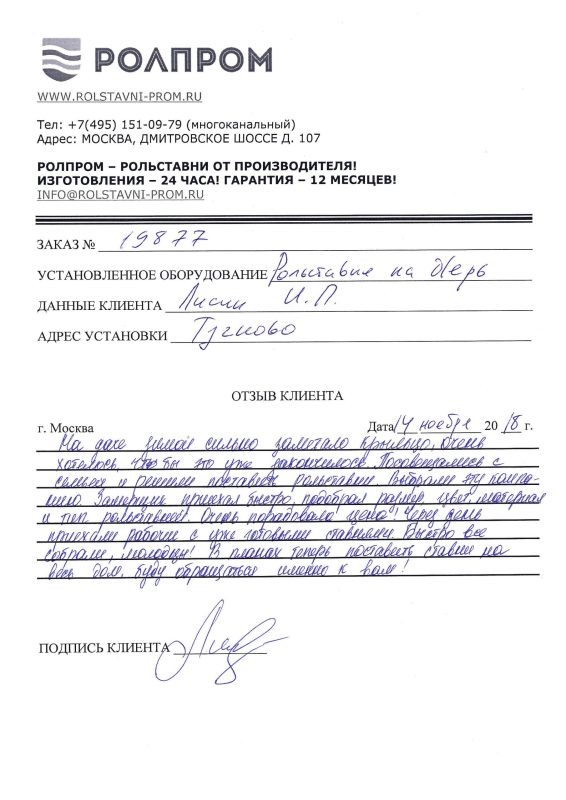 РОЛПРОМ
WWW.ROLSTAVNI-PROM.RU
Тел: +7(495) 151-09-79 (многоканальный)
Адрес: МОСКВА, ДМИТРОВСКОЕ ШОССЕ Д. 107
РОЛПРОМ – РОЛЬСТАВНИ ОТ ПРОИЗВОДИТЕЛЯ!
ИЗГОТОВЛЕНИЯ – 24 ЧАСА! ГАРАНТИЯ – 12 МЕСЯЦЕВ!
INFO@ROLSTAVNI-PROM.RU
ЗАКАЗ № 19877
УСТАНОВЛЕННОЕ ОБОРУДОВАНИЕ Рольставня на дверь
ДАННЫЕ КЛИЕНТА И.П.
АДРЕС УСТАНОВКИ Тучково
ОТЗЫВ КЛИЕНТА
г. Москва Дата 14 ноября 2018 г.
На даче зимой сильно заметало крыльцо, очень
хотелось, что бы это уже закончилось. Посовещались с
семьей и решили поставить рольставни. Выбрали эту компа-
нию. Замерщик приехал быстро, подобрал размер, цвет, материал
и тип рольставней. Очень порадовала цена! Через день
приехали рабочие с уже готовыми ставнями. Быстро все
собрали, молодцы! В планах теперь поставить ставни на
весь дом, буду обращаться именно к вам!
ПОДПИСЬ КЛИЕНТА